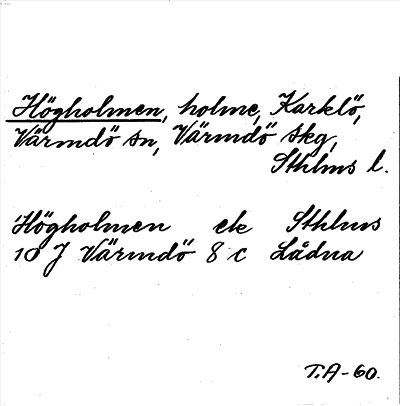 Högholmen, holme, Karklö,
Värmdö sn, Värmdö skg,
Sthlms l.
Högholmen ek Sthlms
10 J Värmdö 8 c Lådna
T.A-60.